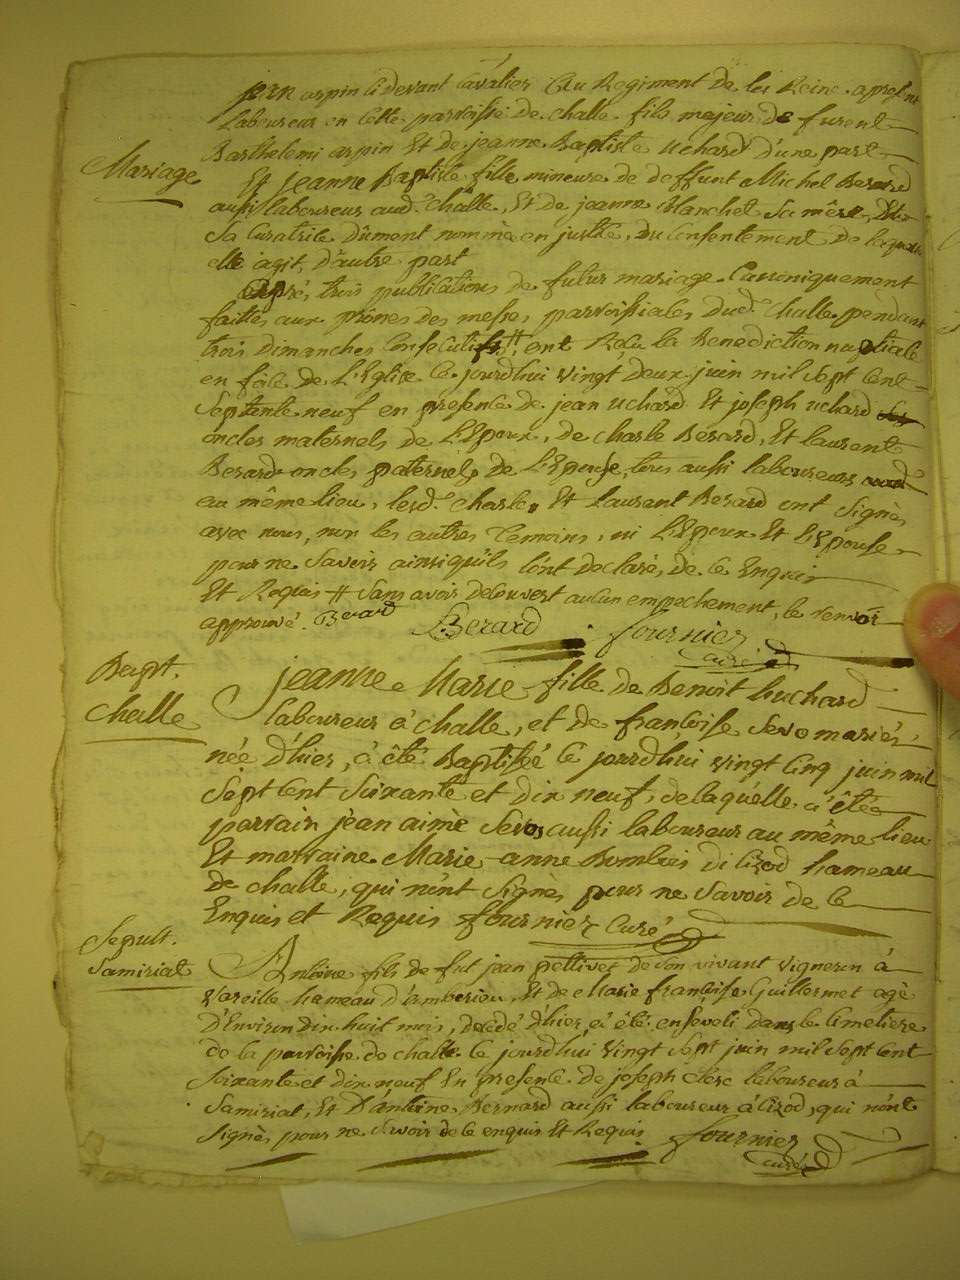 jean arpin ci devant Cavalier Au Regiment de la Reine, apresent
Laboureur en cette parroisse de challe, fils majeur de furent
Barthelemi arpin Et de jeanne Baptiste uchard d'une part
Mariage
Et jeanne Baptiste fille mineure de deffunt Michel Berard
aussi laboureur aud. challe, Et de jeanne Manchet sa mère,
Sa Curatrice dûment nommée en justice, du Consentement de laquelle
elle agit, d'autre part
Après trois publications de futur mariage Canoniquement
faittes aux prônes des messes parroissiales dud. Challe pendant
trois dimanches Consecutifs # ont Reçu la Benediction nuptiale
en face de L'Eglise ce jourd'hui vingt deux juin mil sept cent
Septante neuf en presence de jean uchard Et joseph uchard
oncles maternels de L'Epoux, de Charle Berard, Et laurent
Berard oncles paternels de L'Epouse, tous aussi laboureurs
au même lieu, lesd. Charle, Et Laurent Berard ont Signés
avec nous, non les autres Temoins, ni L'Epoux Et L'Epouse
pour ne Savoir ainsi qu'ils l'ont declaré, de ce Enquis
Et Requis # Sans avoir decouvert aucun empechement, le renvoi
approuvé. Berard LBerard fournier
Curé
Bapt.
Challe
Jeanne Marie fille de Benoit huchard
laboureur à challe, et de françoise Sevo mariés,
née d'hier, à été Baptisée ce jourd'hui vingt Cinq juin mil
Sept Cent Soixante et dix neuf, de laquelle à été
parrain jean aimé Sevos aussi laboureur au même lieu
Et marraine Marie anne Bombois di Cizod hameau
de challe, qui n'ont Signés pour ne Savoir de ce
Enquis et Requis fournier Curé
Sepult.
Samiriat
Antoine fils de fut jean pellivet de Son vivant vigneron à
vareille hameau d'amberieu, Et de Marie françoise Guillermet agé
d'Environ dix huit mois, decedé d'hier, à été enseveli dans le Cimetiere
de la parroisse de challe ce jourd'hui vingt Sept juin mil Sept Cent
Soixante et dix neuf En presence de joseph Clerc laboureur à
Samiriat, Et D'antoine Bernard aussi laboureur à Cizod, qui n'ont
Signés pour ne Savoir de ce enquis Et Requis fournier
curé